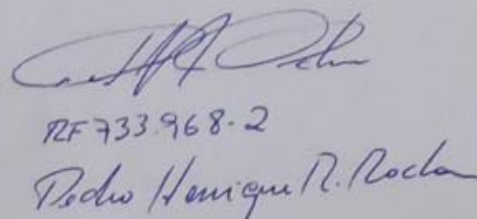 RF 733.968-2
Pedro Henrique R. Rocha